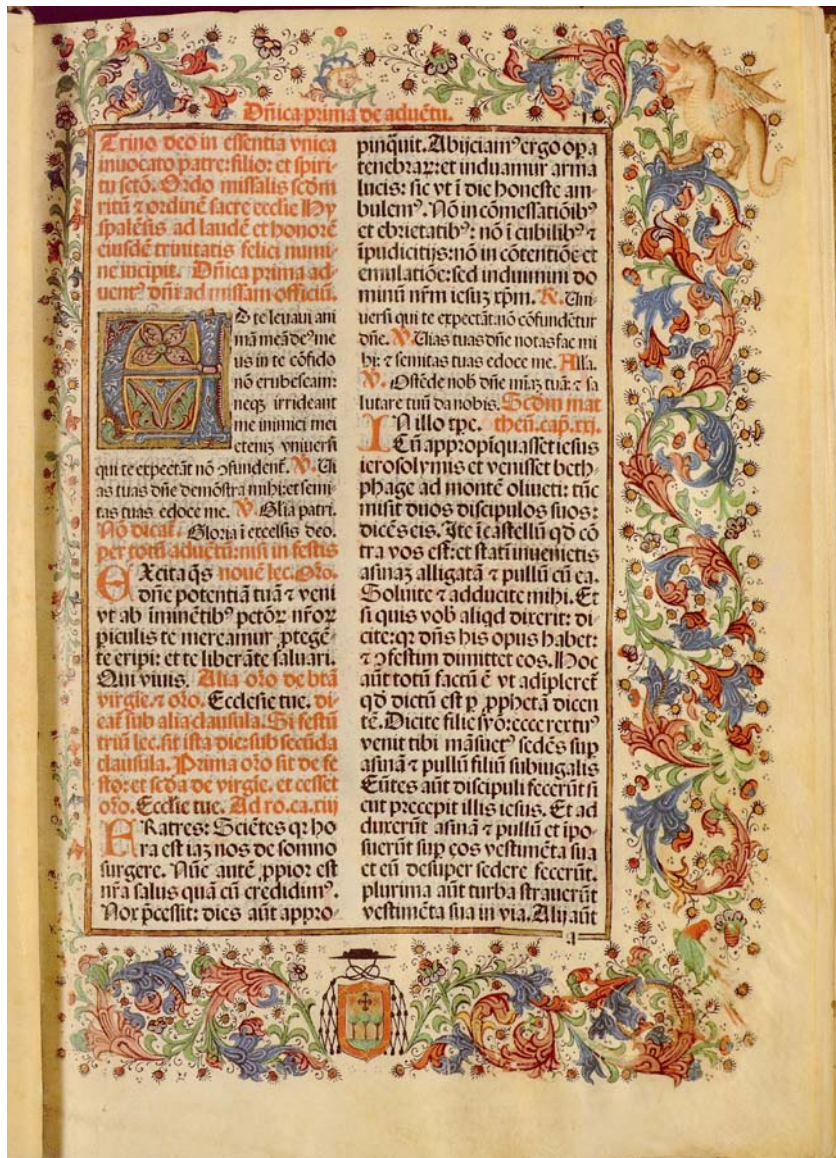 Dñica prima de aduẽtu.
Trino deo in essentia vnica
inuocato patre: filio: et spiri-
tu sctõ. Ordo missalis scđm
ritũ ⁊ ordinẽ sacre ecclie Hy
spalẽsis ad laudẽ et honorẽ
eiusdẽ trinitatis felici numi-
ne incipit. Dñica prima ad-
uentꝰ dñi ad missam officiũ.
AD te leuaui ani
mã meã deꝰ me
us in te cõfido
nõ erubescam:
neqꝫ irrideant
me inimici mei
etenĩ vniuersi
qui te expectãt nõ ꝯfundent᷑. V. Ui
as tuas dñe demõstra mihi: et semi
tas tuas edoce me. V. Glia patri.
Nõ dicat᷑. Gloria ĩ excelsis deo.
per totũ aduẽtũ: nisi in festis
EXcita q̃s nouẽ lec. Oro.
dñe potentiã tuã ⁊ veni
vt ab ĩminẽtibꝰ pctõꝝ nr̃oꝝ
ꝑiculis te mereamur ꝓtegẽ-
te eripi: et te liberãte saluari.
Qui viuis. Alia oro de btã
virgĩe. ⁊ oro. Ecclesie tue. di-
cat᷑ sub alia clausula. Si festũ
triũ lec. sit ista die: sub secũda
clausula. Prima oro sit de fe-
sto: et scđa de virgĩe. et cesset
oro. Ecclie tue. Ad ro. ca. xiij
FRatres: Sciẽtes qꝛ ho
ra est iaꝫ nos de somno
surgere. Nũc autẽ ꝓpior est
nr̃a salus quã cũ credidimꝰ.
Nox p̃cessit: dies aũt appro-
pinq̃uit. Abijciamꝰ ergo oꝑa
tenebraꝝ: et induamur arma
lucis: sic vt ĩ die honeste am-
bulemꝰ. Nõ in cõmessatiõibꝰ
et ebrietatibꝰ: nõ ĩ cubilibꝰ ⁊
ĩpudicitijs: nõ in cõtentiõe et
emulatiõe: sed induimini do
minũ nr̃m iesuꝫ xp̃m. R. Uni-
uersi qui te expectãt: nõ cõfundẽtur
dñe. V. Uias tuas dñe notas fac mi
hi: ⁊ semitas tuas edoce me. Alla.
V. Ostẽde nob̃ dñe mĩaꝫ tuã: ⁊ sa
lutare tuũ da nobis. Scđm mat
theũ. cap. xxj.
IN illo tp̃e.
Cũ appropĩquasset iesus
ierosolymis et venisset beth-
phage ad montẽ oliueti: tũc
misit duos discipulos suos:
dicẽs eis. Ite ĩ castellũ qđ cõ
tra vos est: et statĩ inuenietis
asinaꝫ alligatã ⁊ pullũ cũ ea.
Soluite ⁊ adducite mihi. Et
si quis vob̃ aliqđ dixerit: di-
cite: qꝛ dñs his opus habet:
⁊ ꝯfestim dimittet eos. Hoc
aũt totũ factũ ẽ vt adĩpleret᷑
qđ dictũ est ꝑ ꝓphetã dicen
tẽ. Dicite filie syõ: ecce rex tuꝰ
venit tibi mãsuetꝰ sedẽs suꝑ
asinã ⁊ pullũ filiũ subiugalis
Eũtes aũt discipuli fecerũt si
cut precepit illis iesus. Et ad
duxerũt asinã ⁊ pullũ et ĩpo-
suerũt suꝑ eos vestimẽta sua
et eũ desuper sedere fecerũt.
plurima aũt turba strauerũt
vestimẽta sua in via. Alij aũt